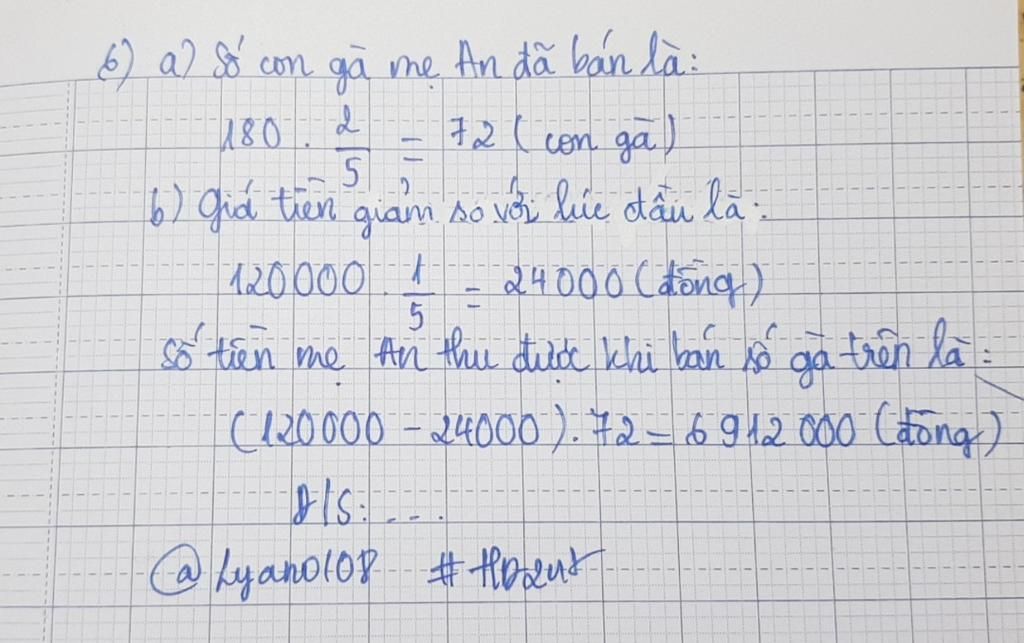 6) a) Số con gà mẹ An đã bán là:
180 . 2/5 = 72 (con gà)
b) Giá tiền giảm so với lúc đầu là:
120000 . 1/5 = 24000 (đồng)
Số tiền mẹ An thu được khi bán số gà trên là:
(120000 - 24000) . 72 = 6 912 000 (đồng)
Đ/S: ....
@Lyano108 #